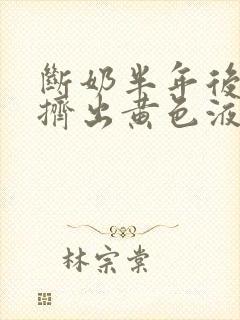 斷奶半年後
擠出黃色液
林宗棠